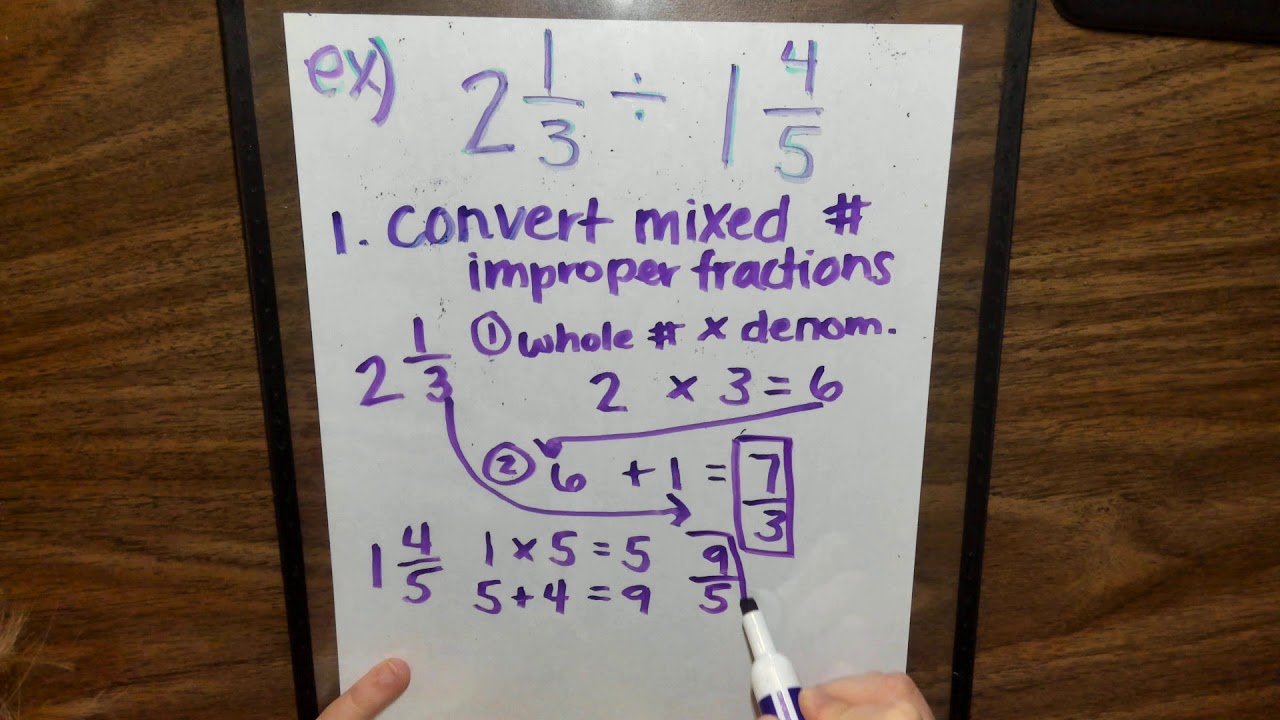 ex) 2 1/3 ÷ 1 4/5
1. convert mixed #
improper fractions
2 1/3 ① whole # x denom.
2 x 3 = 6
② 6 + 1 = 7/3
1 4/5 1 x 5 = 5 9/5
5 + 4 = 9